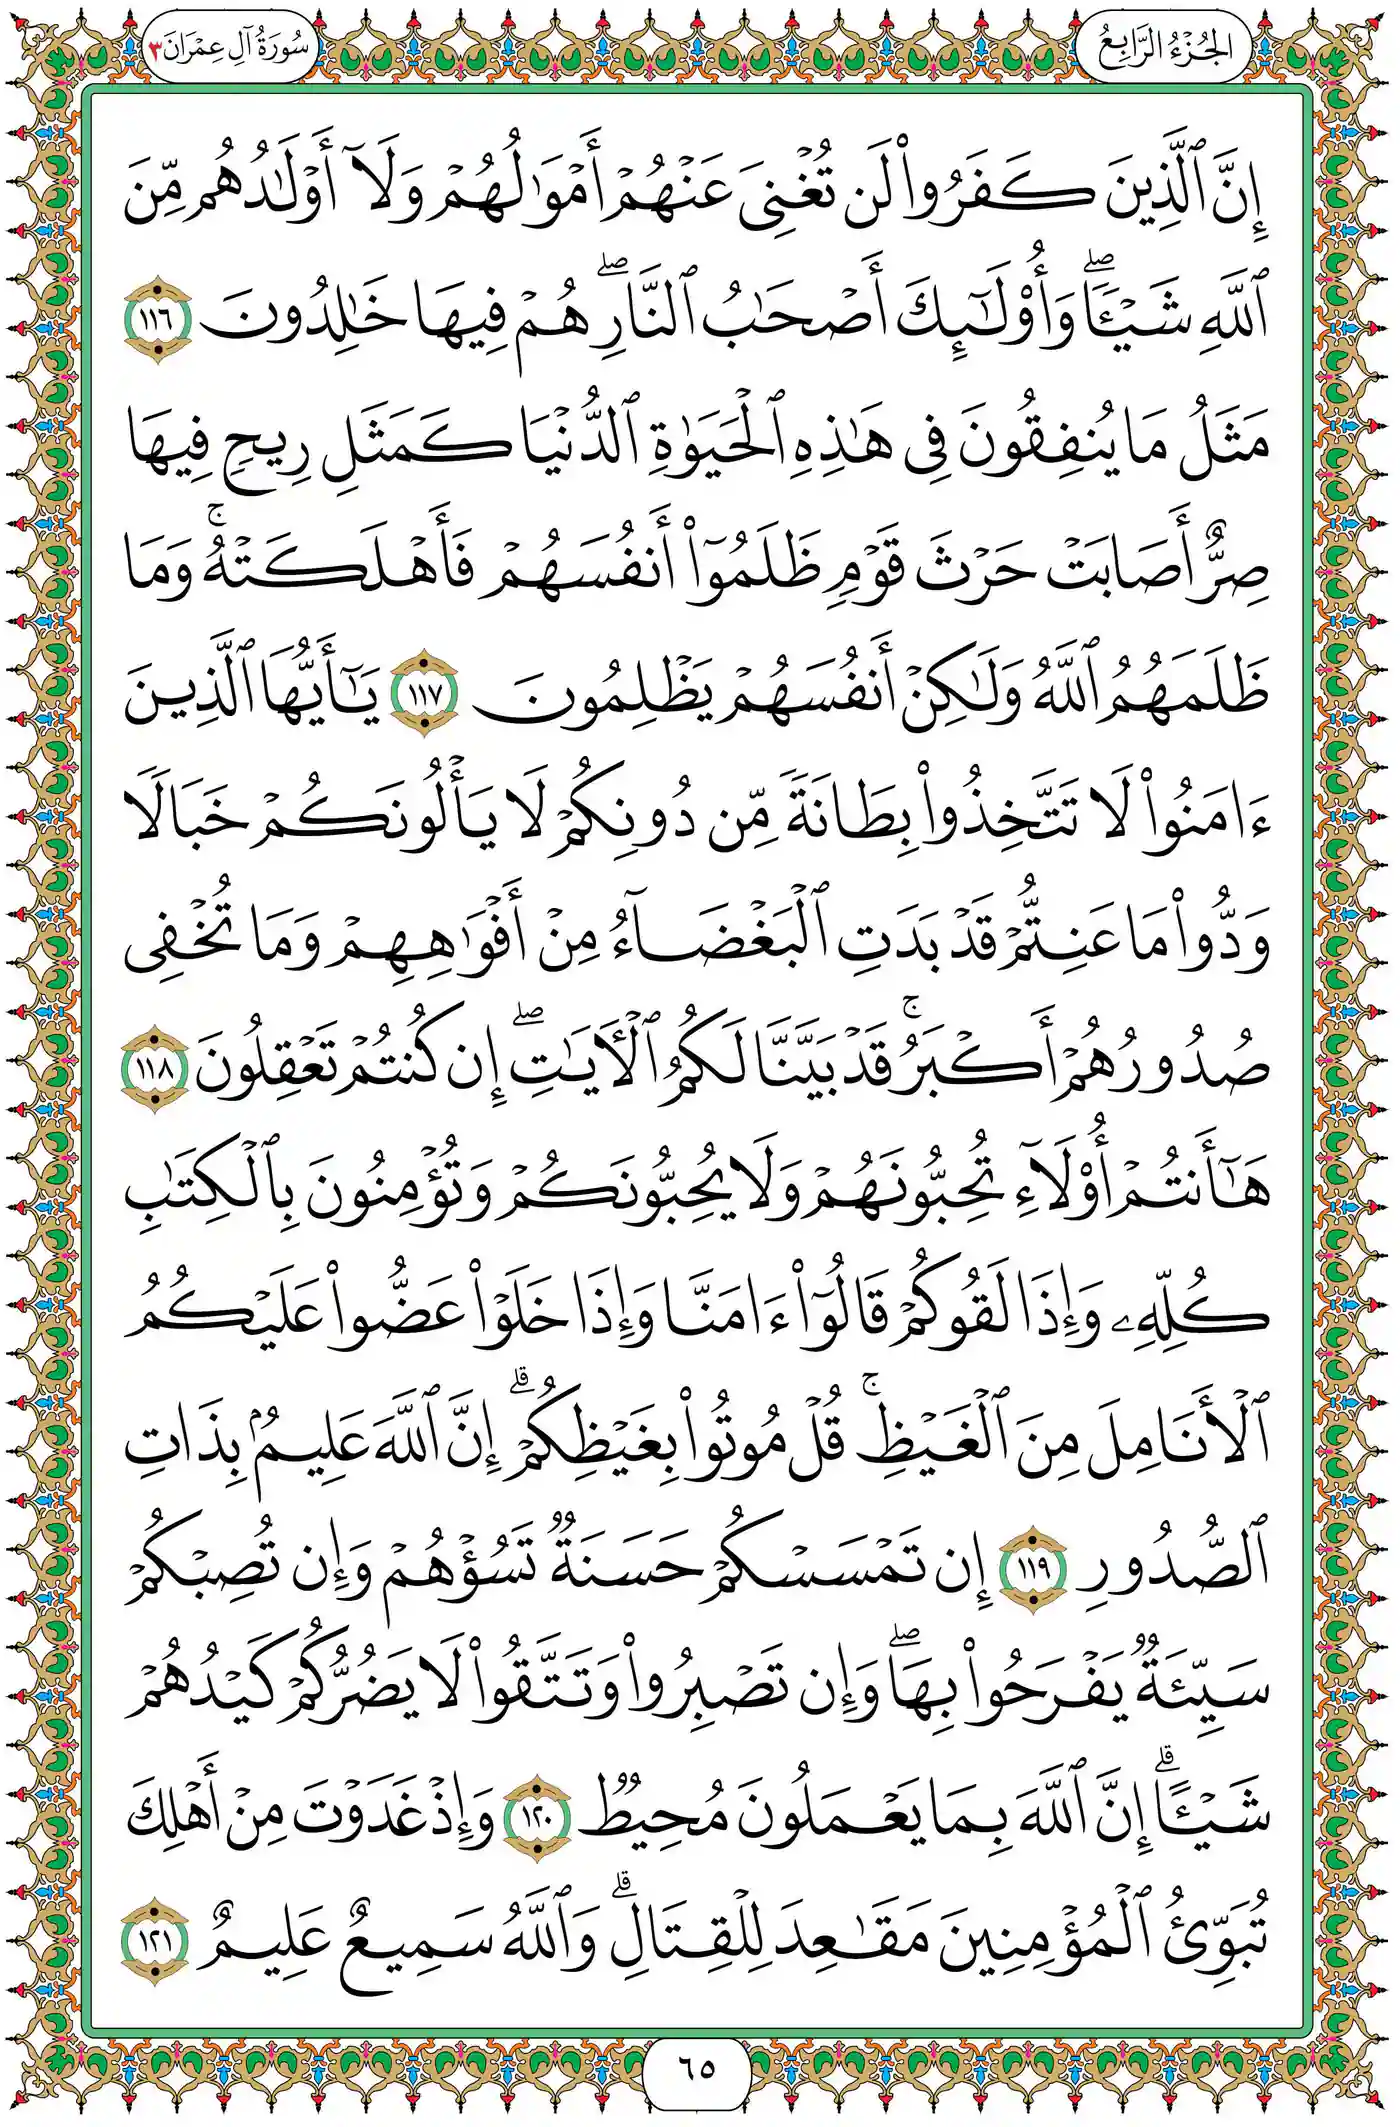 الجُزْءُ الرَّابِعُ
سُورَةُ آلِ عِمْرَانَ ٣
إِنَّ ٱلَّذِينَ كَفَرُوا۟ لَن تُغْنِىَ عَنْهُمْ أَمْوَٰلُهُمْ وَلَآ أَوْلَـٰدُهُم مِّنَ
ٱللَّهِ شَيْـًٔا ۖ وَأُو۟لَـٰٓئِكَ أَصْحَـٰبُ ٱلنَّارِ ۖ هُمْ فِيهَا خَـٰلِدُونَ ١١٦
مَثَلُ مَا يُنفِقُونَ فِى هَـٰذِهِ ٱلْحَيَوٰةِ ٱلدُّنْيَا كَمَثَلِ رِيحٍ فِيهَا
صِرٌّ أَصَابَتْ حَرْثَ قَوْمٍ ظَلَمُوٓا۟ أَنفُسَهُمْ فَأَهْلَكَتْهُ ۚ وَمَا
ظَلَمَهُمُ ٱللَّهُ وَلَـٰكِنْ أَنفُسَهُمْ يَظْلِمُونَ ١١٧ يَـٰٓأَيُّهَا ٱلَّذِينَ
ءَامَنُوا۟ لَا تَتَّخِذُوا۟ بِطَانَةً مِّن دُونِكُمْ لَا يَأْلُونَكُمْ خَبَالًا
وَدُّوا۟ مَا عَنِتُّمْ قَدْ بَدَتِ ٱلْبَغْضَآءُ مِنْ أَفْوَٰهِهِمْ وَمَا تُخْفِى
صُدُورُهُمْ أَكْبَرُ ۚ قَدْ بَيَّنَّا لَكُمُ ٱلْـَٔايَـٰتِ ۖ إِن كُنتُمْ تَعْقِلُونَ ١١٨
هَـٰٓأَنتُمْ أُو۟لَآءِ تُحِبُّونَهُمْ وَلَا يُحِبُّونَكُمْ وَتُؤْمِنُونَ بِٱلْكِتَـٰبِ
كُلِّهِۦ وَإِذَا لَقُوكُمْ قَالُوٓا۟ ءَامَنَّا وَإِذَا خَلَوْا۟ عَضُّوا۟ عَلَيْكُمُ
ٱلْأَنَامِلَ مِنَ ٱلْغَيْظِ ۚ قُلْ مُوتُوا۟ بِغَيْظِكُمْ ۗ إِنَّ ٱللَّهَ عَلِيمٌۢ بِذَاتِ
ٱلصُّدُورِ ١١٩ إِن تَمْسَسْكُمْ حَسَنَةٌ تَسُؤْهُمْ وَإِن تُصِبْكُمْ
سَيِّئَةٌ يَفْرَحُوا۟ بِهَا ۖ وَإِن تَصْبِرُوا۟ وَتَتَّقُوا۟ لَا يَضُرُّكُمْ كَيْدُهُمْ
شَيْـًٔا ۗ إِنَّ ٱللَّهَ بِمَا يَعْمَلُونَ مُحِيطٌ ١٢٠ وَإِذْ غَدَوْتَ مِنْ أَهْلِكَ
تُبَوِّئُ ٱلْمُؤْمِنِينَ مَقَـٰعِدَ لِلْقِتَالِ ۗ وَٱللَّهُ سَمِيعٌ عَلِيمٌ ١٢١
٦٥